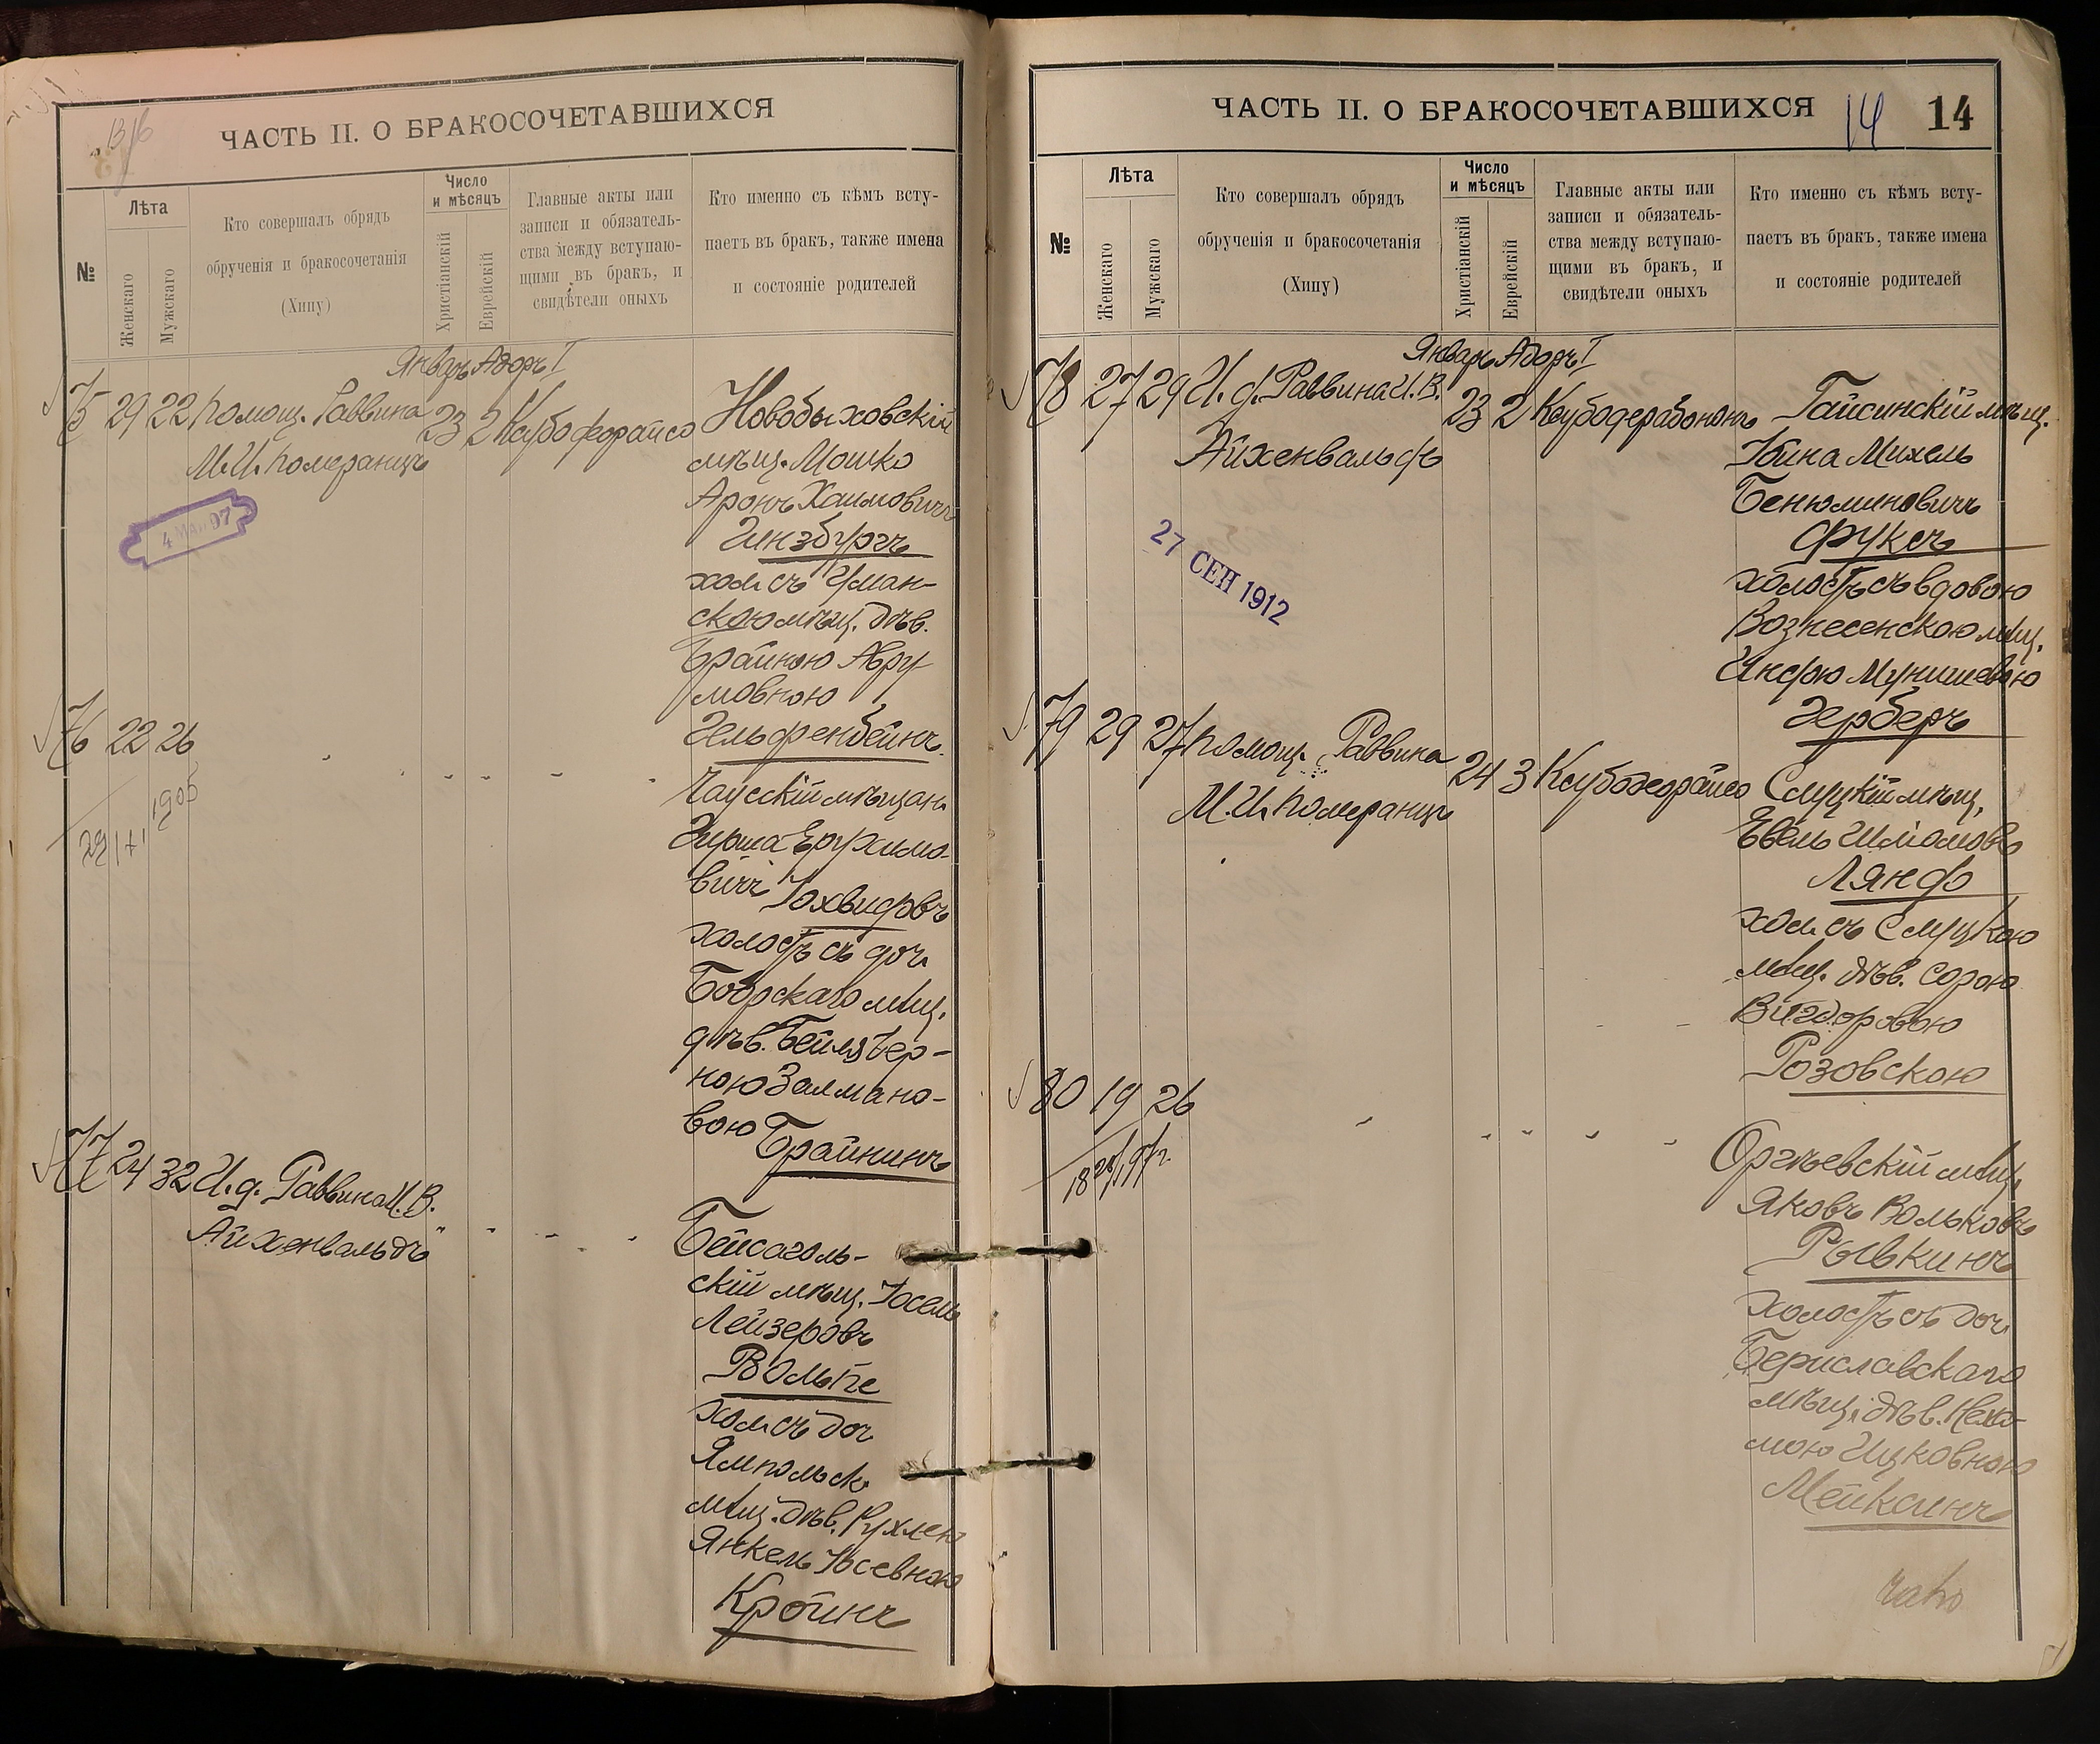 ЧАСТЬ II. О БРАКОСОЧЕТАВШИХСЯ
№
Лѣта
Женскаго
Мужскаго
Кто совершалъ обрядъ
обрученія и бракосочетанія
(Хипу)
Число
и мѣсяцъ
Христіанскій
Еврейскій
Главные акты или
записи и обязатель-
ства между вступаю-
щими въ бракъ, и
свидѣтели оныхъ
Кто именно съ кѣмъ всту-
паетъ въ бракъ, также имена
и состояніе родителей
Январь Адоръ I
75 29 22 Помощ. Раввина 23 2 Ксубо
М. И. Померанцъ
Новобыховскій
мѣщ. Мошко
Аронъ Хаимовичъ
Гинзбургъ
хол. съ Уман-
скою мѣщ. дѣв.
Брайною Авру
мовною
Гельфенбейнъ
76 22 26
1905
Чаусскій мѣщан.
Гирша Ерухимо-
вичъ Іохвидовъ
холостъ съ доч.
Бобрскаго мѣщ.
дѣв. Бейля Чер-
ною Залмано-
вою Брайнинъ
77 24 32 И. д. Раввина И. В.
Айхенвальдъ
Бейсаголь-
скій мѣщ. Іосель
Лейзеровъ
Вольпе
хол. съ доч
Ямпольск.
мѣщ. дѣв. Рухлею
Янкель Іосевною
Кройнъ
4 МАР 97
ЧАСТЬ II. О БРАКОСОЧЕТАВШИХСЯ
14
14
№
Лѣта
Женскаго
Мужскаго
Кто совершалъ обрядъ
обрученія и бракосочетанія
(Хипу)
Число
и мѣсяцъ
Христіанскій
Еврейскій
Главные акты или
записи и обязатель-
ства между вступаю-
щими въ бракъ, и
свидѣтели оныхъ
Кто именно съ кѣмъ всту-
паетъ въ бракъ, также имена
и состояніе родителей
Январь Адоръ I
78 27 29 И. д. Раввина И. В. 23 2 Ксубодерабононъ
Айхенвальдъ
Гайсинскій мѣщ.
Ібина Михель
Бенюминовичъ
Фуксъ
холостъ съ вдовою
Вознесенскою мѣщ.
Индою Мунишевою
Герберъ
27 СЕН 1912
79 29 27 Помощ. Раввина 24 3 Ксубо
М. И. Померанцъ
Слуцкій мѣщ.
Евель Шліомовъ
Ляндо
хол. съ Слуцкою
мѣщ. дѣв. Сорою
Вигдоровою
Розовскою
80 19 26
Оргѣевскій мѣщ.
Яковъ Вольковъ
Рывкинъ
холостъ съ доч.
Бериславскаго
мѣщ. дѣв. Неха-
мою Ицковною
Мейксинъ